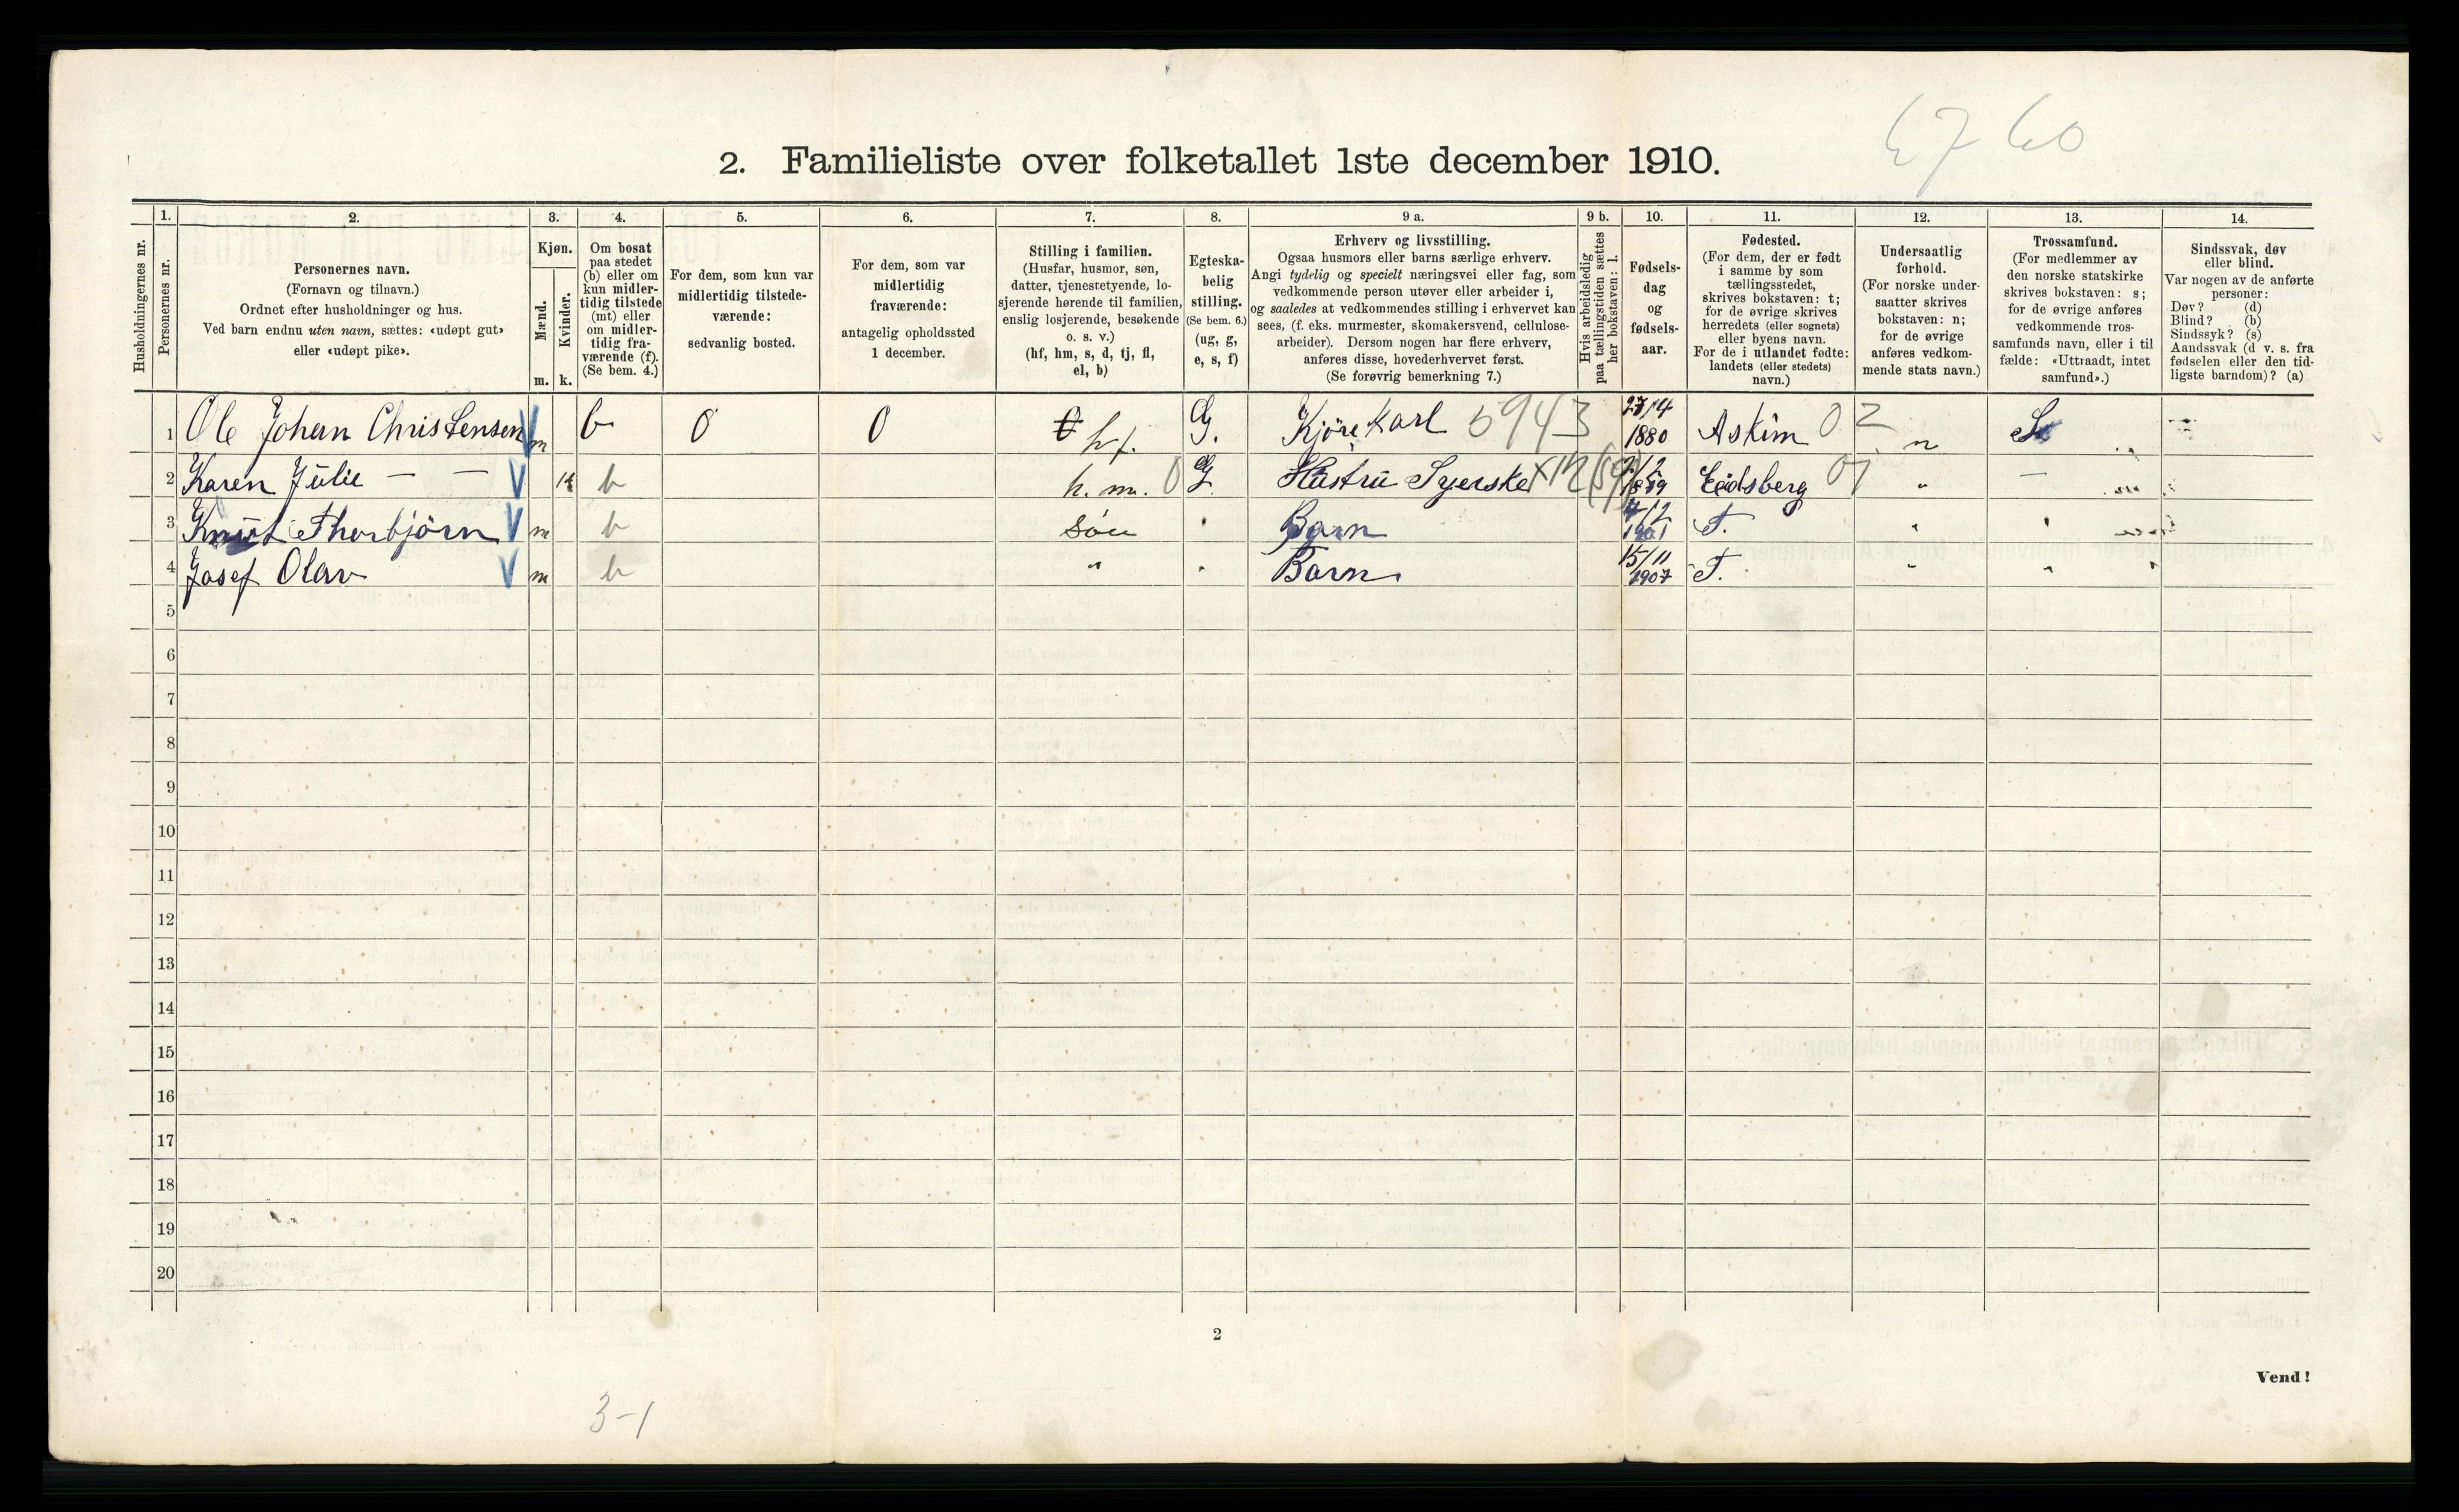 6760
2. Familieliste over folketallet 1ste december 1910.
Husholdningernes nr.
1. Personernes nr.
2. Personernes navn.
(Fornavn og tilnavn.)
Ordnet efter husholdninger og hus.
Ved barn endnu uten navn, sættes: «udøpt gut»
eller «udøpt pike».
3. Kjøn.
Mænd. m.
Kvinder. k.
4. Om bosat
paa stedet
(b) eller om
kun midler-
tidig tilstede
(mt) eller
om midler-
tidig fra-
værende (f).
(Se bem. 4.)
5. For dem, som kun var
midlertidig tilstede-
værende:
sedvanlig bosted.
6. For dem, som var
midlertidig
fraværende:
antagelig opholdssted
1 december.
7. Stilling i familien.
(Husfar, husmor, søn,
datter, tjenestetyende, lo-
sjerende hørende til familien,
enslig losjerende, besøkende
o. s. v.)
(hf, hm, s, d, tj, fl,
el, b)
8. Egteska-
belig
stilling.
(Se bem. 6.)
(ug, g,
e, s, f)
9 a. Erhverv og livsstilling.
Ogsaa husmors eller barns særlige erhverv.
Angi tydelig og specielt næringsvei eller fag, som
vedkommende person utøver eller arbeider i,
og saaledes at vedkommendes stilling i erhvervet kan
sees, (f. eks. murmester, skomakersvend, cellulose-
arbeider). Dersom nogen har flere erhverv,
anføres disse, hovederhvervet først.
(Se forøvrig bemerkning 7.)
9 b. Hvis arbeidsledig
paa tællingstiden sættes
her bokstaven: l.
10. Fødsels-
dag
og
fødsels-
aar.
11. Fødested.
(For dem, der er født
i samme by som
tællingsstedet,
skrives bokstaven: t;
for de øvrige skrives
herredets (eller sognets)
eller byens navn.
For de i utlandet fødte:
landets (eller stedets)
navn.)
12. Undersaatlig
forhold.
(For norske under-
saatter skrives
bokstaven: n;
for de øvrige
anføres vedkom-
mende stats navn.)
13. Trossamfund.
(For medlemmer av
den norske statskirke
skrives bokstaven: s;
for de øvrige anføres
vedkommende tros-
samfunds navn, eller i til
fælde: «Uttraadt, intet
samfund».)
14. Sindssvak, døv
eller blind.
Var nogen av de anførte
personer:
Døv? (d)
Blind? (b)
Sindssyk? (s)
Aandssvak (d v. s. fra
fødselen eller den tid-
ligste barndom)? (a)
1 Ole Johan Christensen m b 0 0 hf. G. Kjørekarl 5943 27/4 1880 Askim 02 n S
2 Karen Julie — — k b h. m. 0 G. Hustru Syerske Eidsberg 07 " —
3 Knut Thorbjörn m b Søn " Barn T. " "
4 Josef Olav m b " " Barn. 15/11 1907 T. " " "
5
6
7
8
9
10
11
12
13
14
15
16
17
18
19
20
2
Vend!
3-1